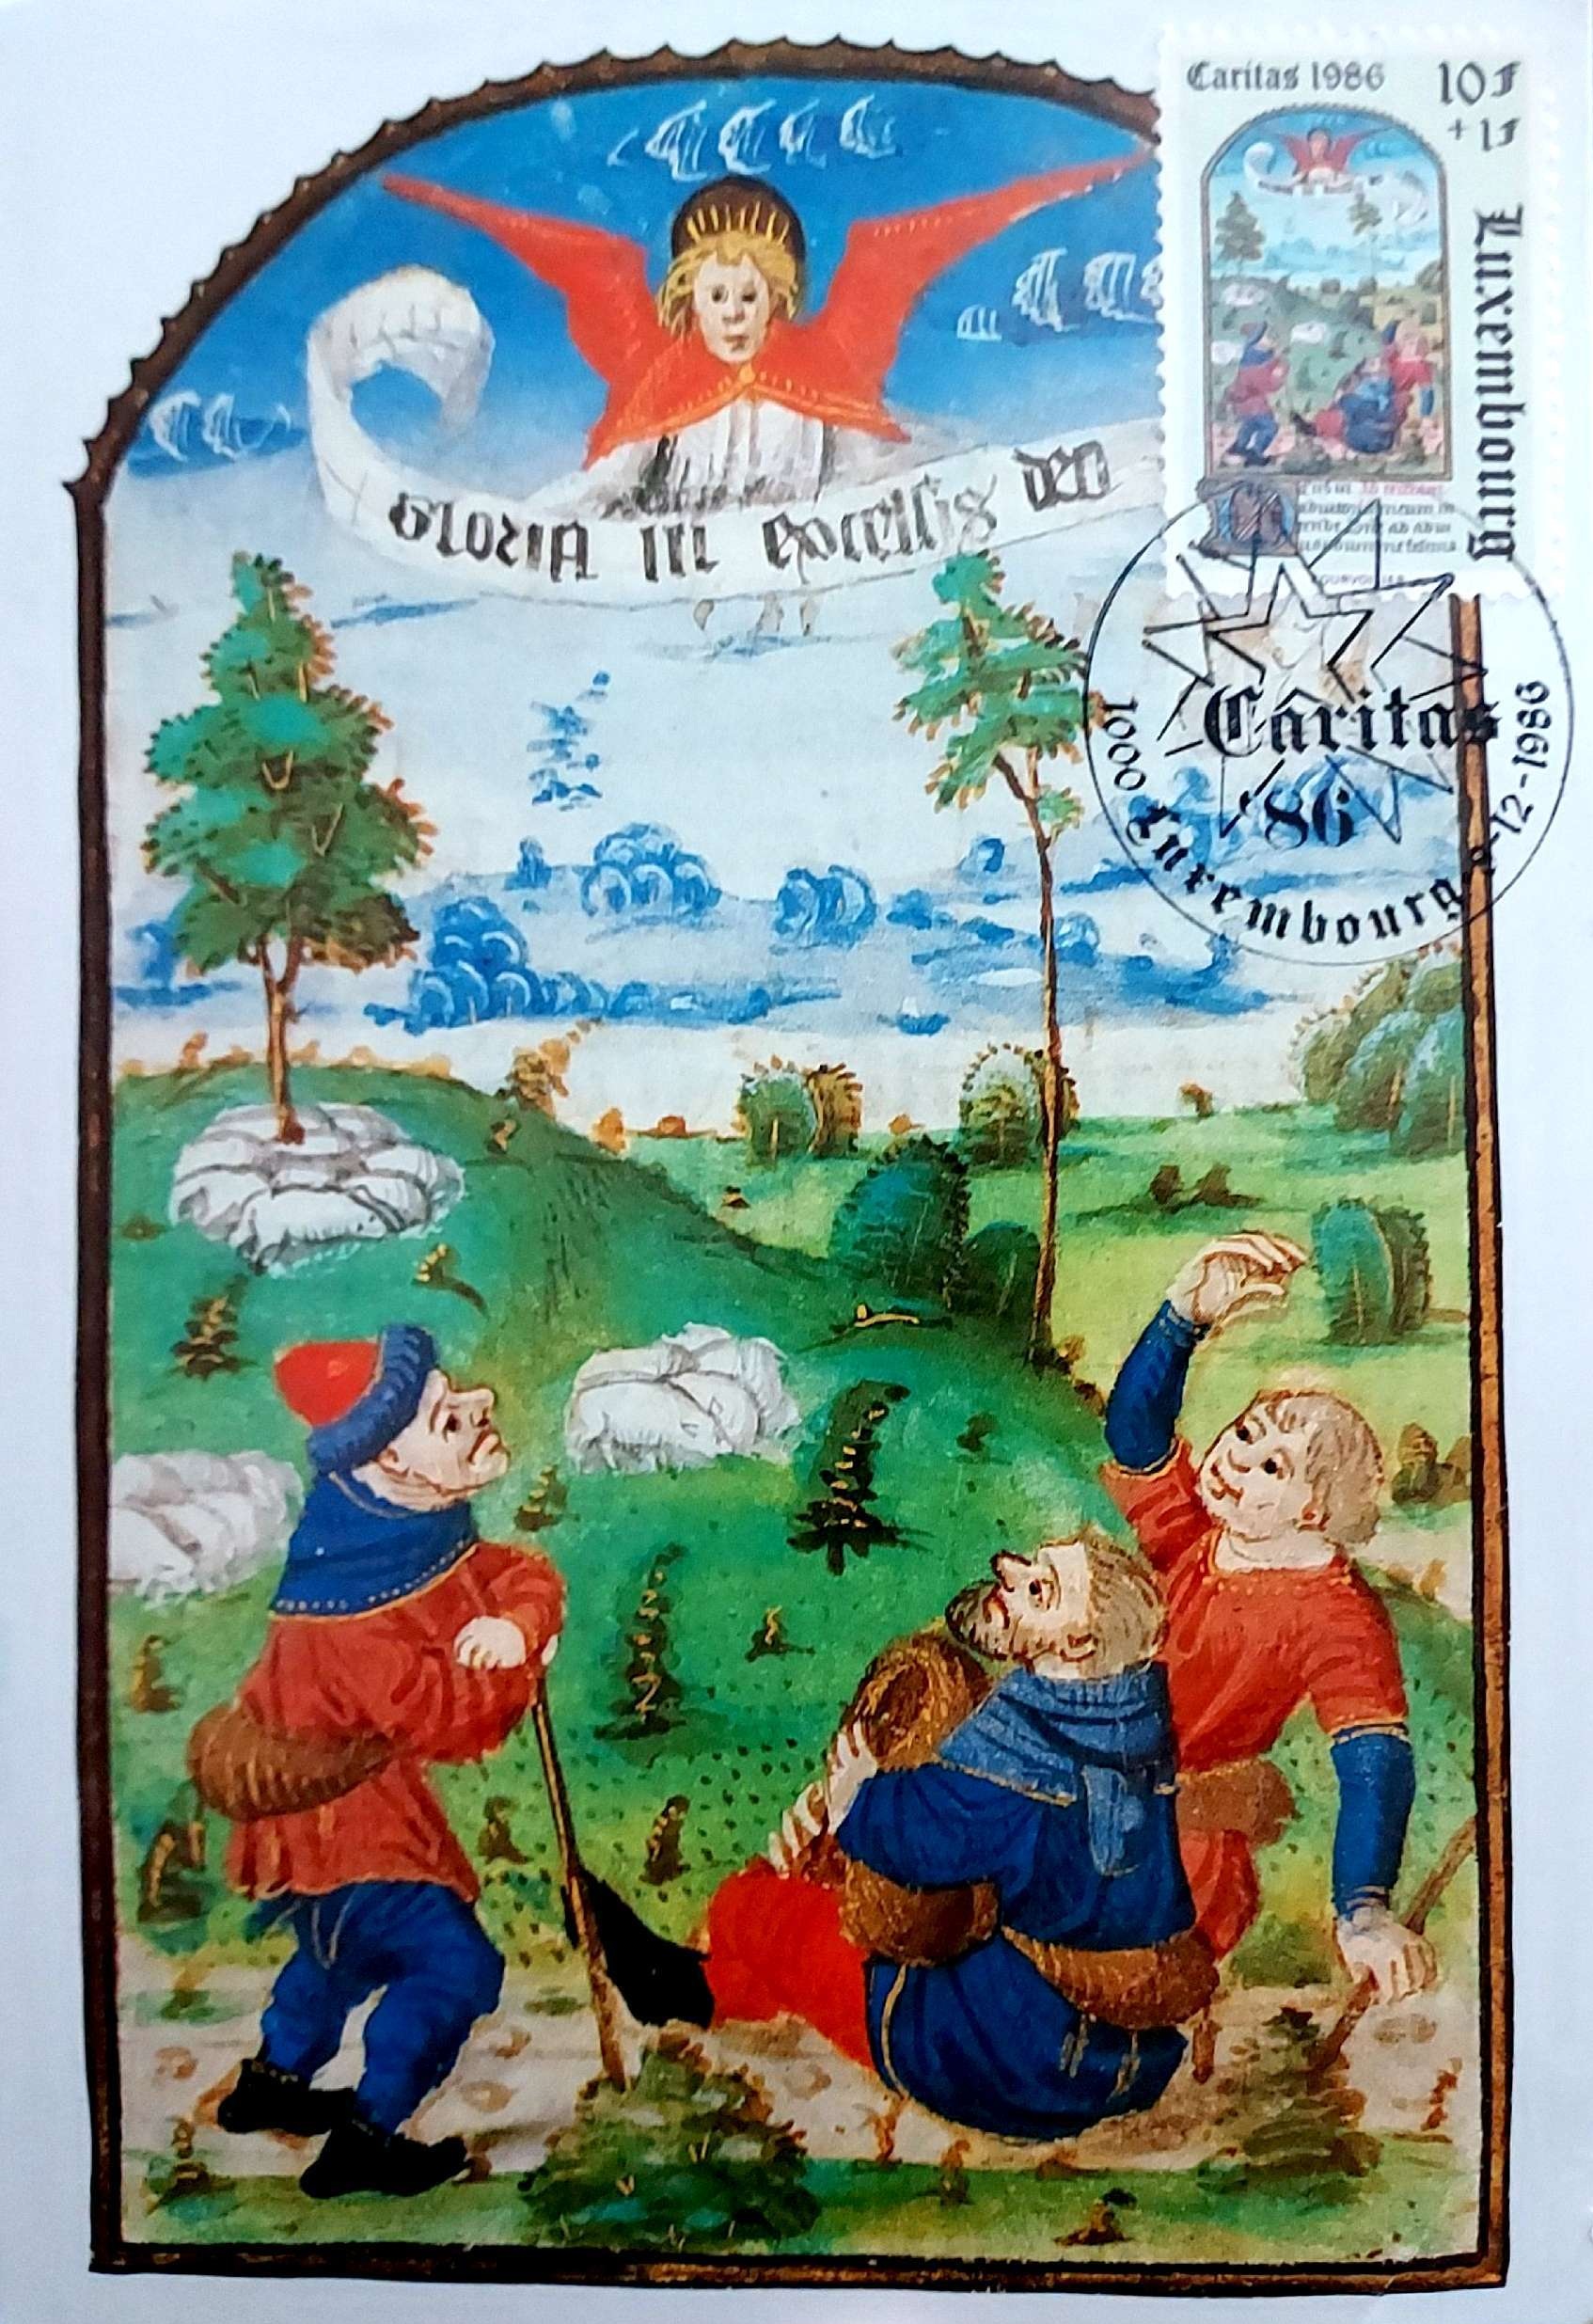 Caritas 1986
10F
+ 1F
Luxembourg
GLORIA IN Excelsis DEO
COURVOISIER
Caritas
'86
1000 Luxembourg
-12-1986